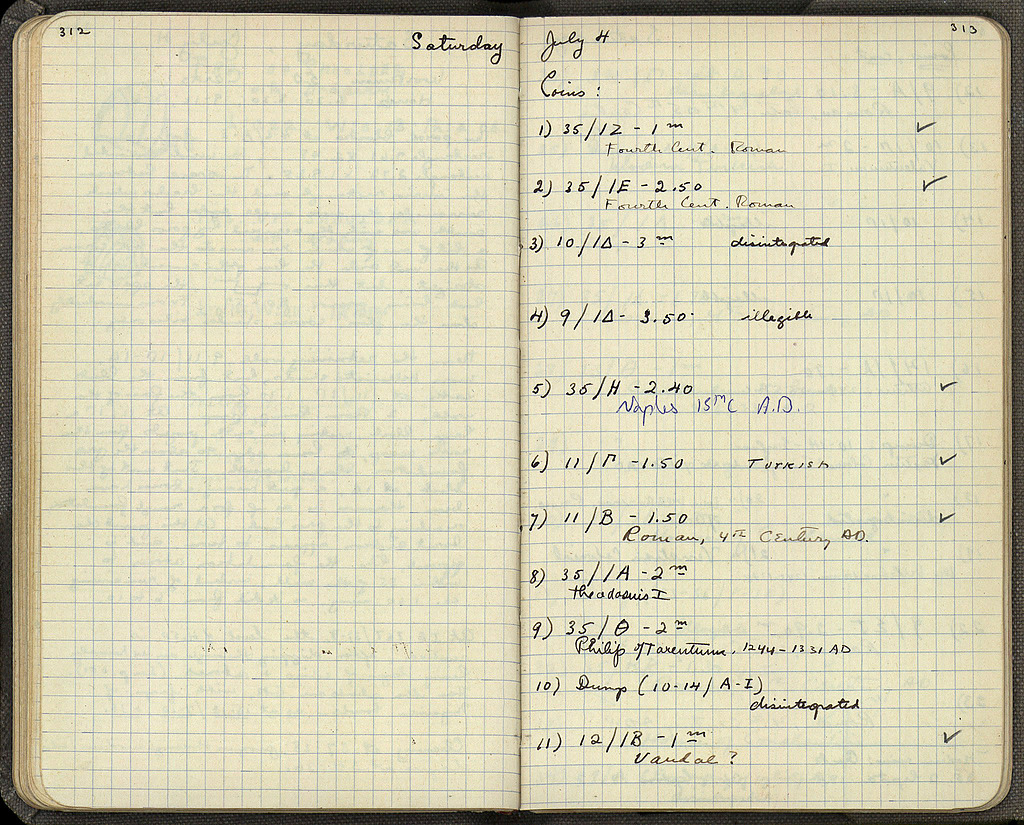 312
Saturday
July 4
313
Coins:
1) 35/1Z - 1 m
Fourth Cent. Roman
2) 35/1E - 2.50
Fourth Cent. Roman
3) 10/1Δ - 3 m disintegrated
4) 9/1Δ - 3.50 illegible
5) 35/H - 2.40
Naples 15th C A.D.
6) 11/Γ - 1.50 Turkish
7) 11/B - 1.50
Roman, 4th Century AD.
8) 35/1A - 2 m
Theodosius I
9) 35/Θ - 2 m
Philip of Tarentum. 1244-1331 AD
10) Dump (10-14/A-I)
disintegrated
11) 12/1B - 1 m
Vandal?